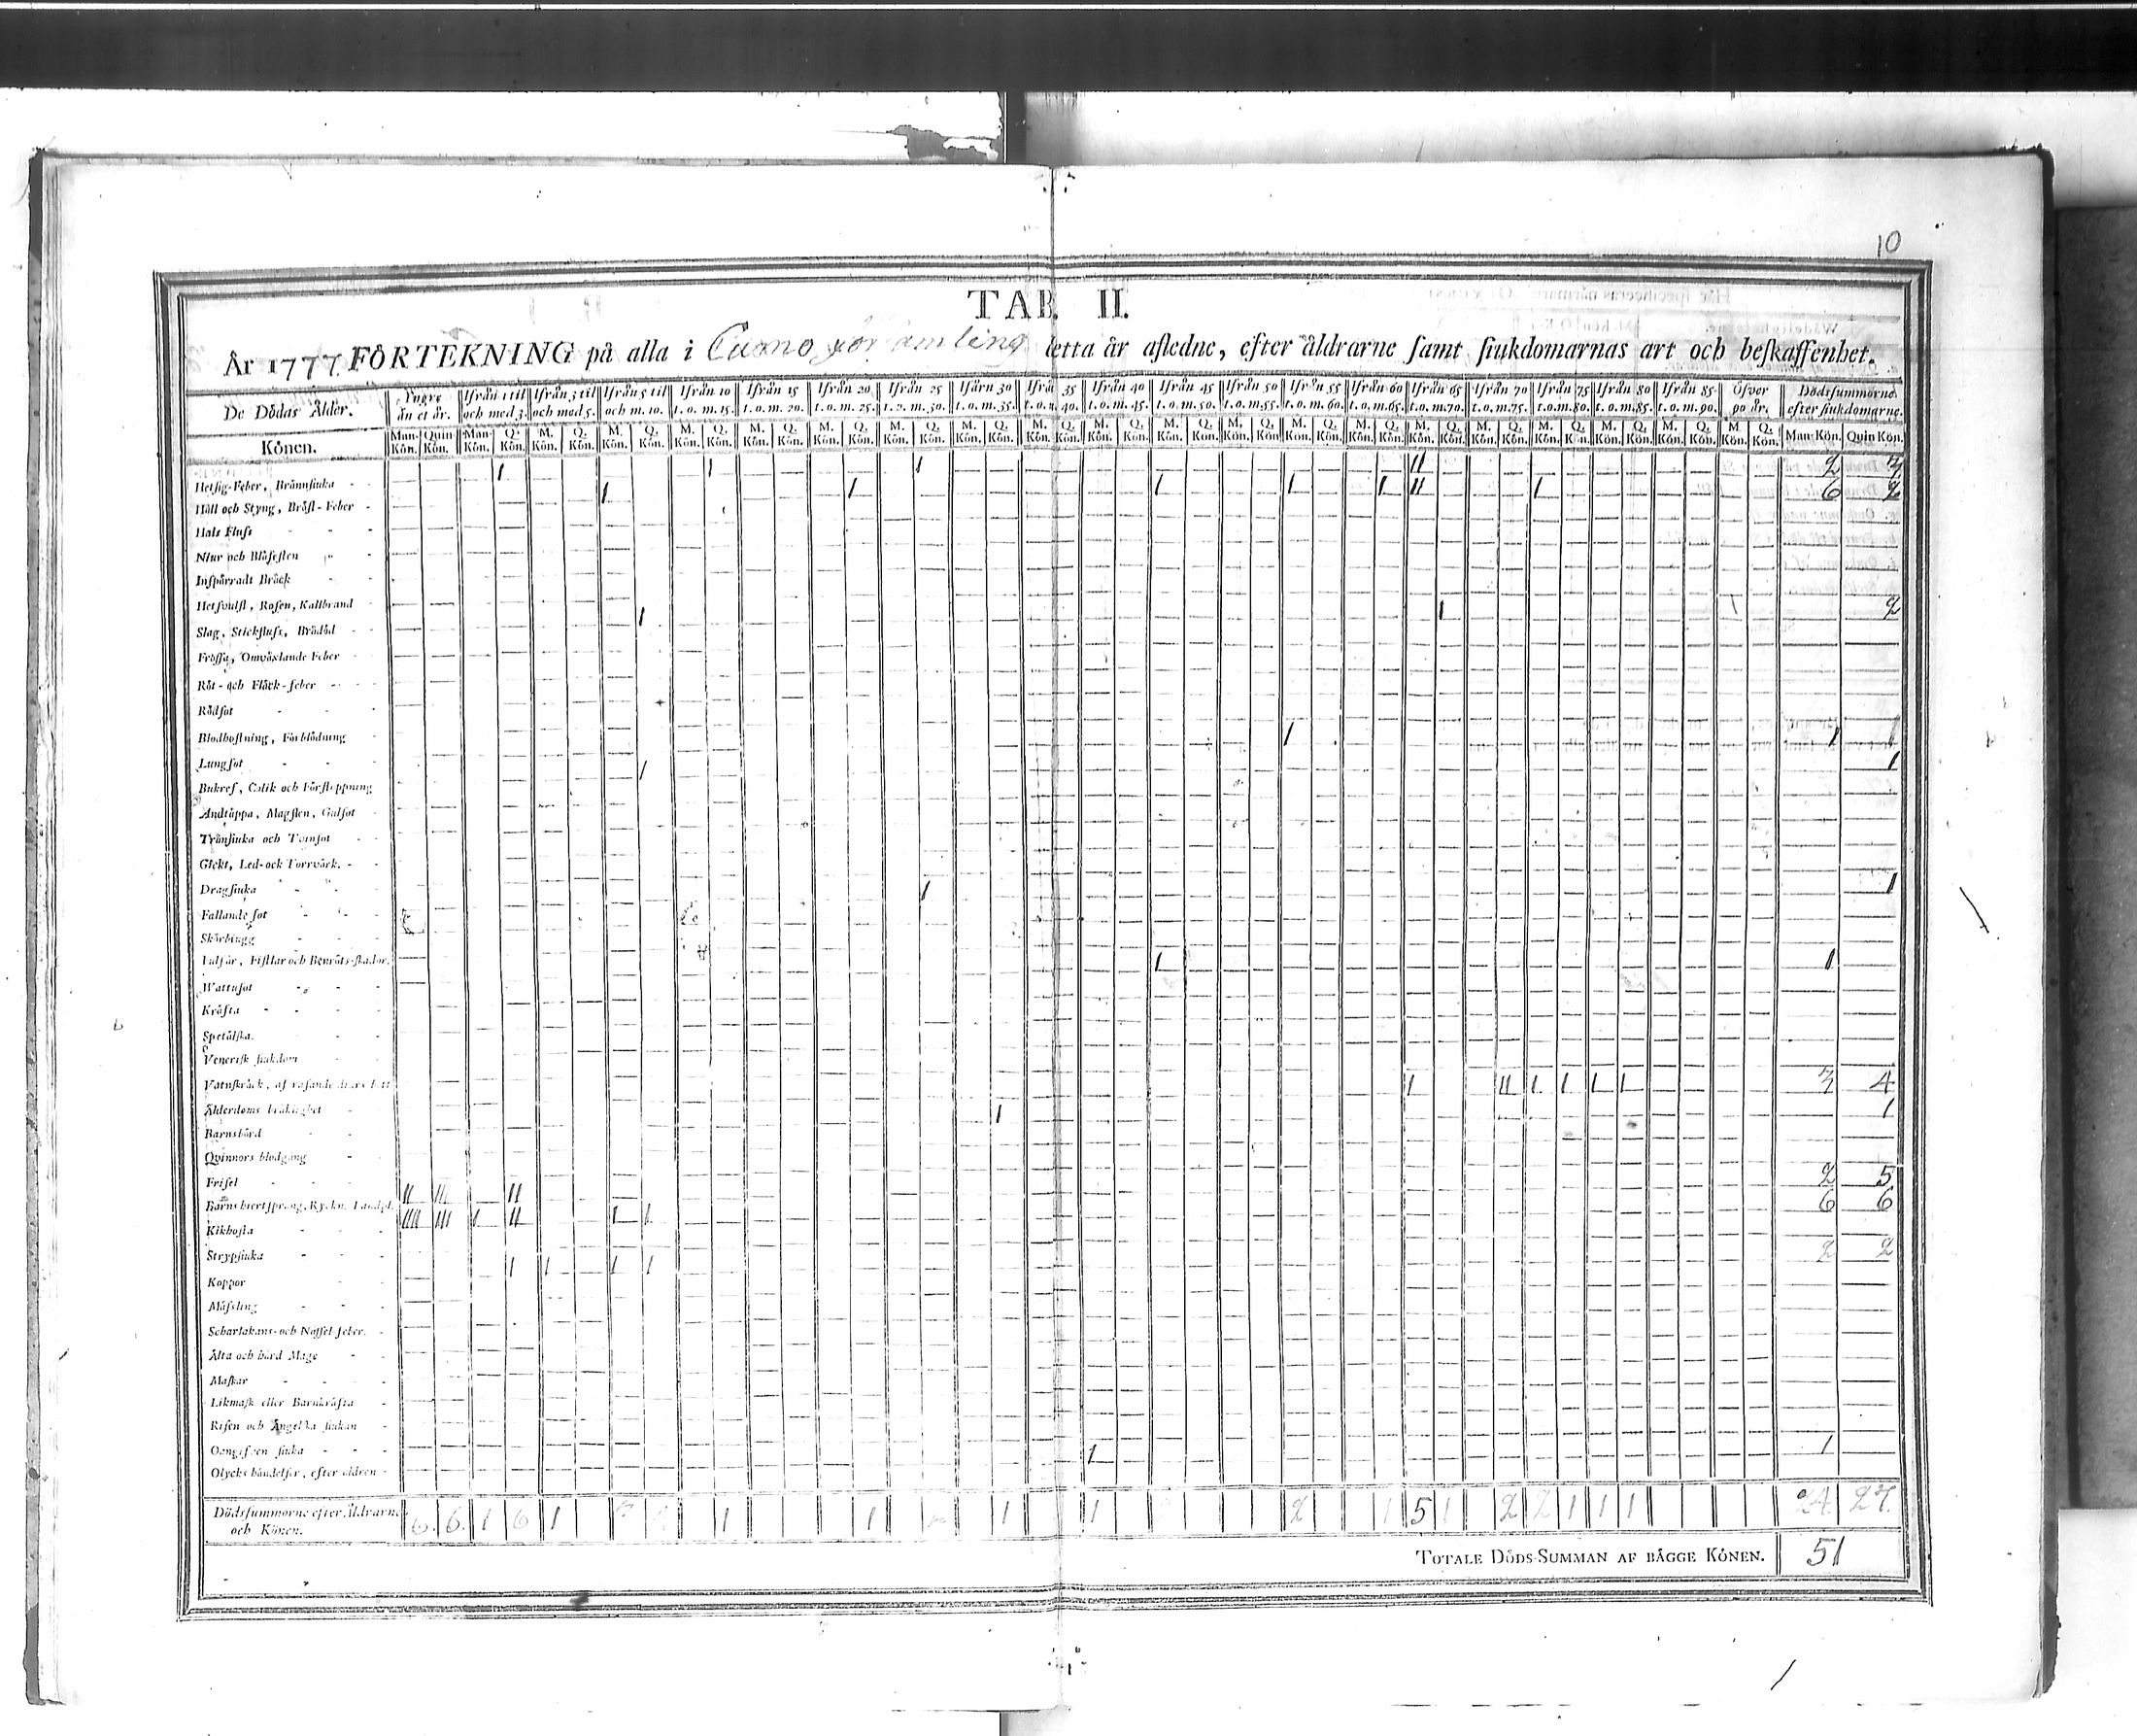 10
TAB. II.
År 1777 FÖRTEKNING på alla i Cumo församling detta år afledne, efter åldrarne samt siukdomarnas art och beskaffenhet.
De Dödas Ålder. Yngre än et år. Ifrån 1 til och med 3. Ifrån 3 til och med 5. Ifrån 5 til och m. 10. Ifrån 10 t. o. m. 15. Ifrån 15 t. o. m. 20. Ifrån 20 t. o. m. 25. Ifrån 25 t. o. m. 30. Ifårn 30 t. o. m. 35. Ifrån 35 40. Ifrån 40 t. o. m. 45. Ifrån 45 t. o. m. 50. Ifrån 50 t. o. m. 55. Ifrån 55 t. o. m. 60. Ifrån 60 t. o. m. 65. Ifrån 65 t. o. m. 70. Ifrån 70 t. o. m. 75. Ifrån 75 t. o. m. 80. Ifrån 80 t. o. m. 85. Ifrån 85 t. o. m. 90. Öfver 90 år. Dödssummorne efter siukdomarne.
Könen. Man-Kön. Quin Kön. Man-Kön. Q. Kön. M. Kön. Q. Kön. M. Kön. Q. Kön. M. Kön. Q. Kön. M. Kön. Q. Kön. M. Kön. Q. Kön. M. Kön. Q. Kön. M. Kön. Q. Kön. M. Kön. Q. Kön. M. Kön. Q. Kön. M. Kön. Q. Kön. M. Kön. Q. Kön. M. Kön. Q. Kön. M. Kön. Q. Kön. M. Kön. Q. Kön. M. Kön. Q. Kön. M. Kön. Q. Kön. M. Kön. Q. Kön. M. Kön. Q. Kön. M Kön. Q. Kön. Man-Kön. Quin Kön.
Hetsig-Feber, Brännsiuka 1 1 1 11 2 3
Håll och Styng, Bröst-Feber 1 1 1 1 1 11 1 6 2
Hals Fluss
Niur och Blåsesten
Inspärradt Bråck
Hetsvulst, Rosen, Kallbrand
Slag, Stickfluss, Brådöd 1 1 2
Frossa, Omväxlande Feber
Röt- och Fläck-feber
Rödsot
Blodhostning, Förblödning
Lungsot 1 1
Bukref, Colik och Förstoppning 1 1
Andtäppa, Magsten, Gulsot
Trånsiuka och Tvinsot
Gickt, Led-och Torrvärk.
Dragsiuka
Fallande sot 1 1
Skörbiugg
Fistlar och Benröts-skador.
Wattusot 1 1
Kräfta
Spetälska.
Venerisk siukdom
Vatnskräck, af rasande diurs bett
Ålderdoms bräcklighet 1 11 1 1 1 1 3 4
Barnsbörd 1 1
Qvinnors blodgång
Frisel
Barns hiertsprång, Ryckn. 11 111 11 2 5
Kikhosta 1111 111 1 11 1 1 6 6
Strypsiuka
Koppor 1 1 1 1 2 2
Mässling
Scharlakans- och Nässel feber.
Älta och hård Mage
Maskar
Likmask eller Barnkräfta
Risen och Ängelska siukan
Oangifven siuka
Olycks händelser, efter åldren 1 1
Dödssummorne efter Åldrarne och Könen. 6. 6. 1 6 1 1 1 1 1 2 1 5 1 2 2 1 1 1 24 27.
TOTALE DÖDS-SUMMAN AF BÄGGE KÖNEN. 51